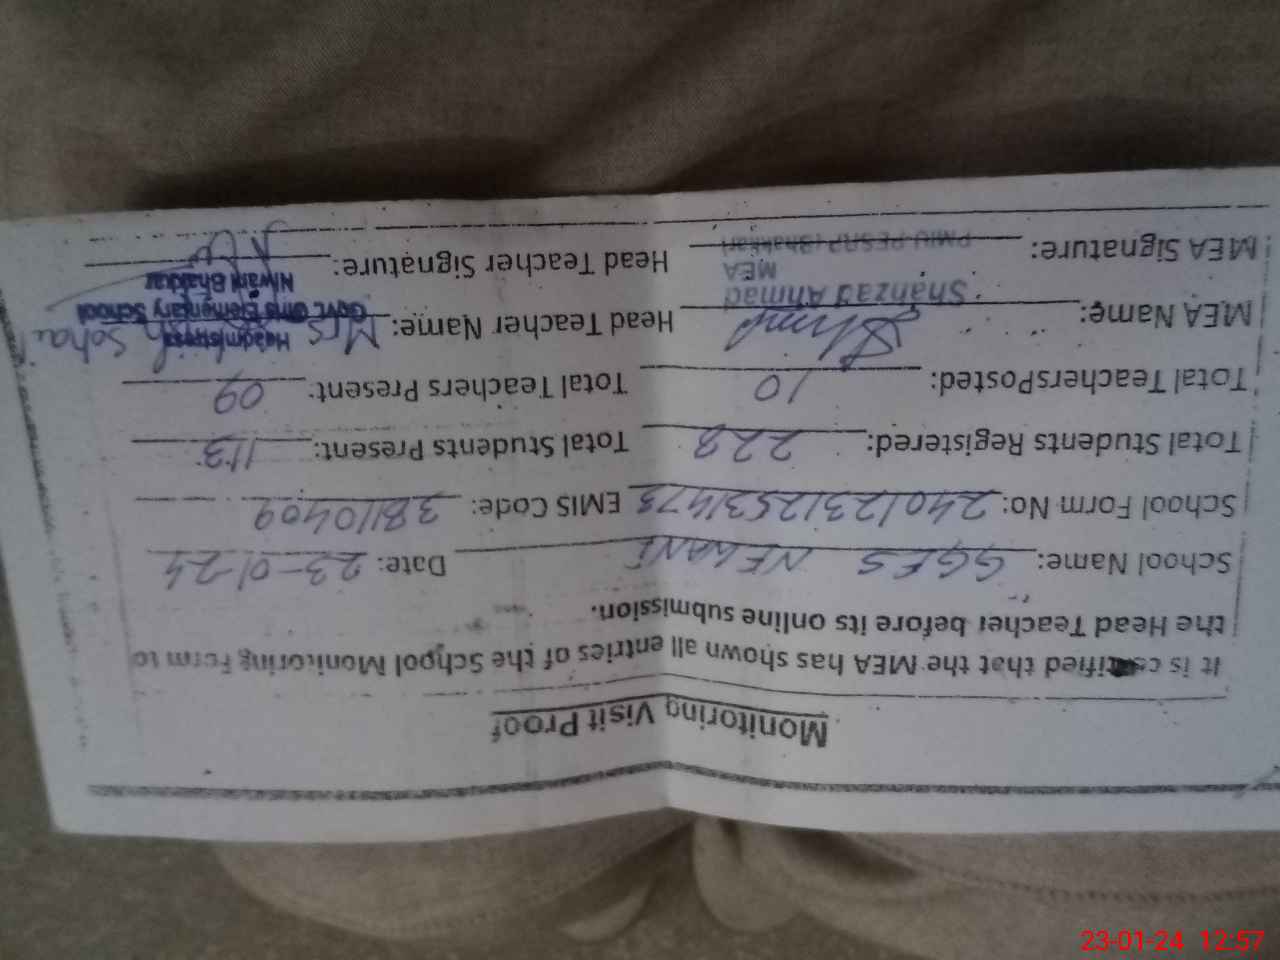 Monitoring Visit Proof
It is certified that the MEA has shown all entries of the School Monitoring Form to
the Head Teacher before its online submission.
School Name: GGES NEWANI Date: 23-01-24
School Form No: 24012312531473 EMIS Code: 38110409
Total Students Registered: 223 Total Students Present: 113
Total TeachersPosted: 10 Total Teachers Present: 09
MEA Name: Shahzad Ahmad Head Teacher Name: Mrs
MEA
PMIU-PESRP (Bhakkar)
Headmistress
Govt. Girls Elementary School
Niwani Bhakkar
MEA Signature: Head Teacher Signature:
23-01-24 12:57